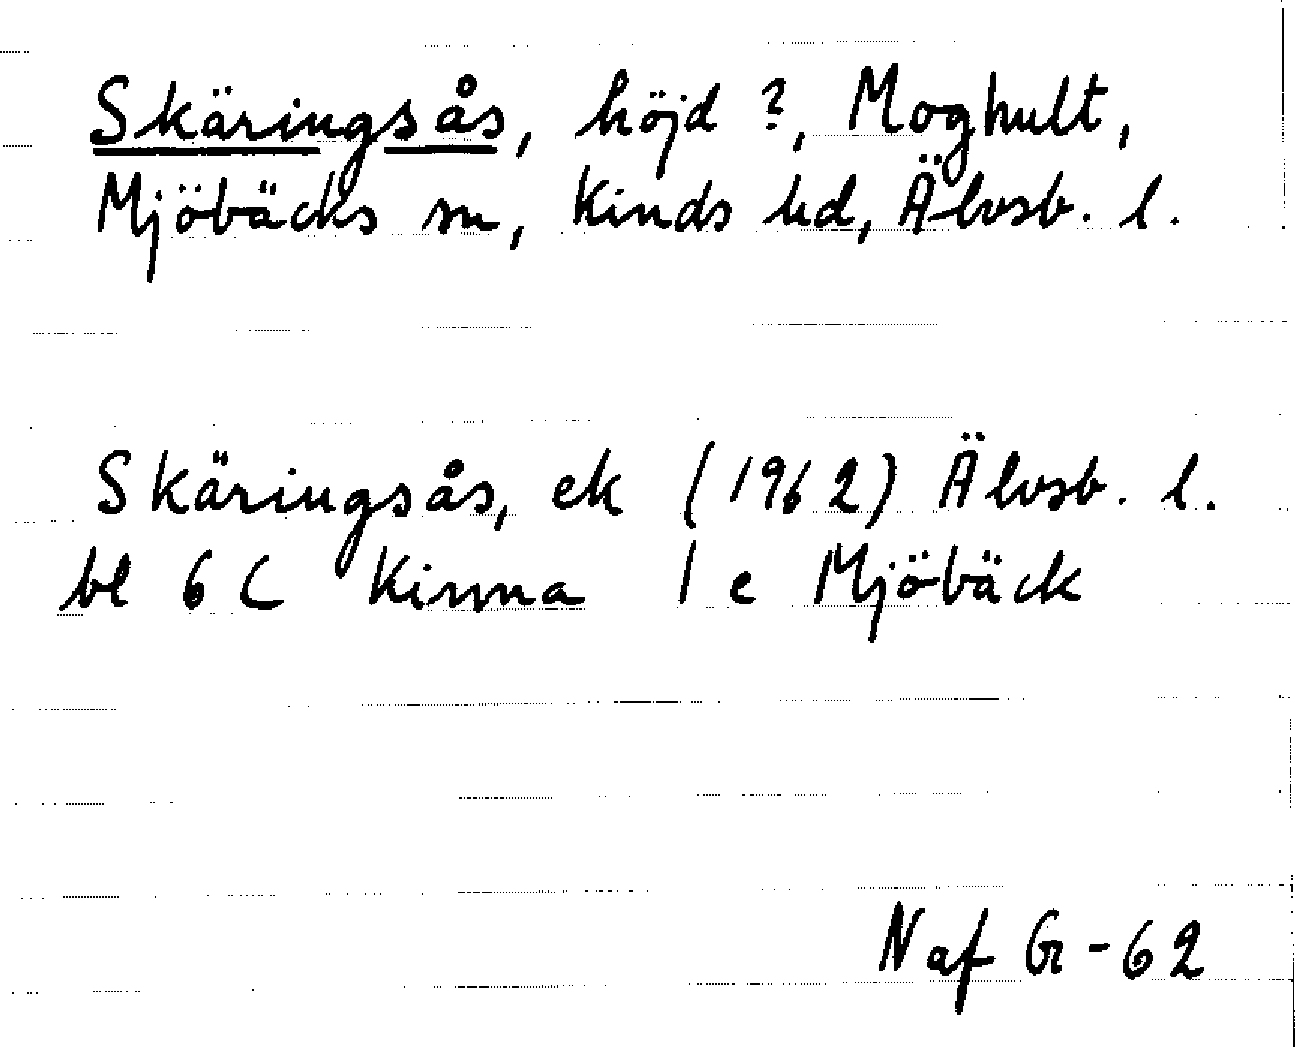 Skäringsås, höjd ?, Moghult,
Mjöbäcks sn, Kinds hd, Älvsb. l.
Skäringsås, ek (1962) Älvsb. l.
bl 6 C Kinna 1 e Mjöbäck
Naf Gr-62